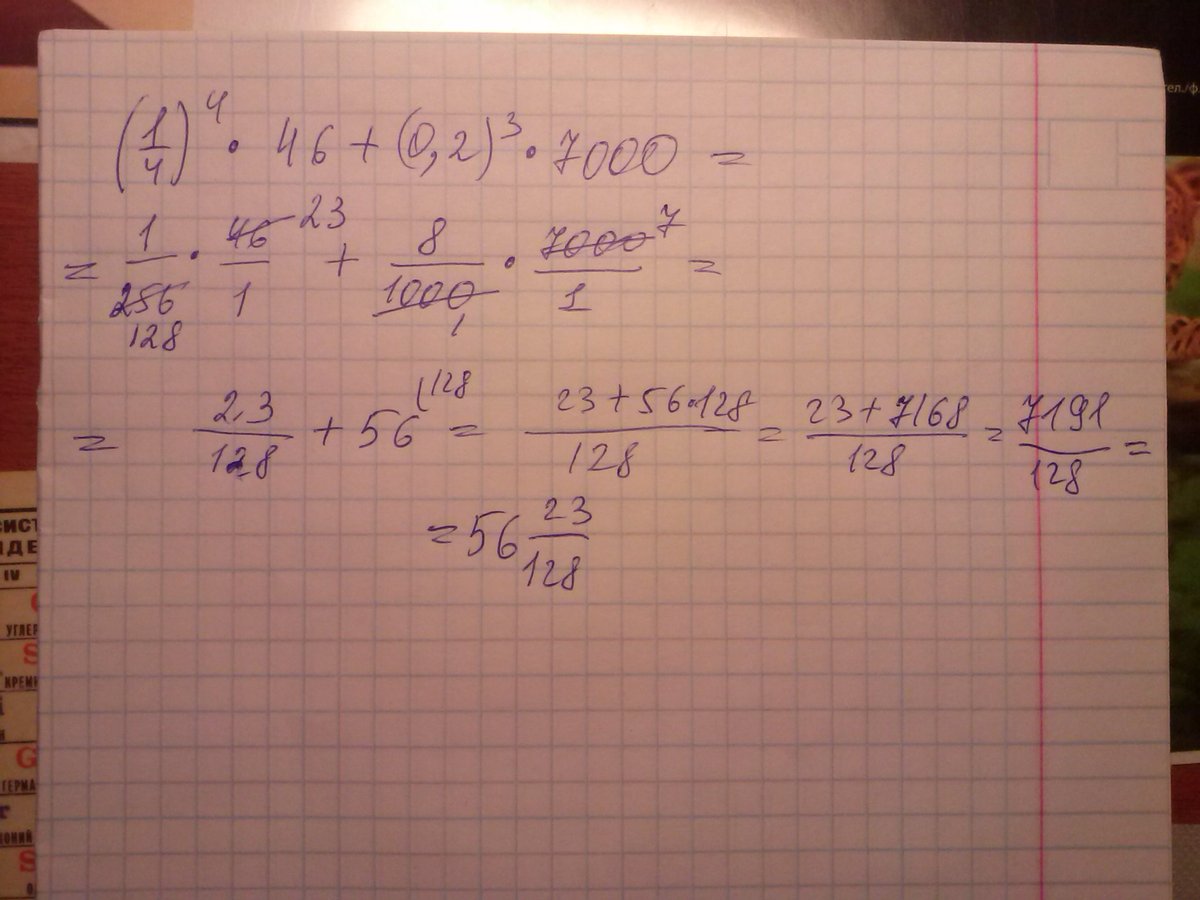 (1/4)^4 · 46 + (0,2)^3 · 7000 =
= 1/256 128 · 46 23/1 + 8/1000 1 · 7000 7/1 =
= 23/128 + 56 (128 = 23+56·128/128 = 23+7168/128 = 7191/128 =
= 56 23/128
ел./ф.
СИСТ
ДЕ
IV
УГЛЕР
S
КРЕМН
G
ГЕРМА
S